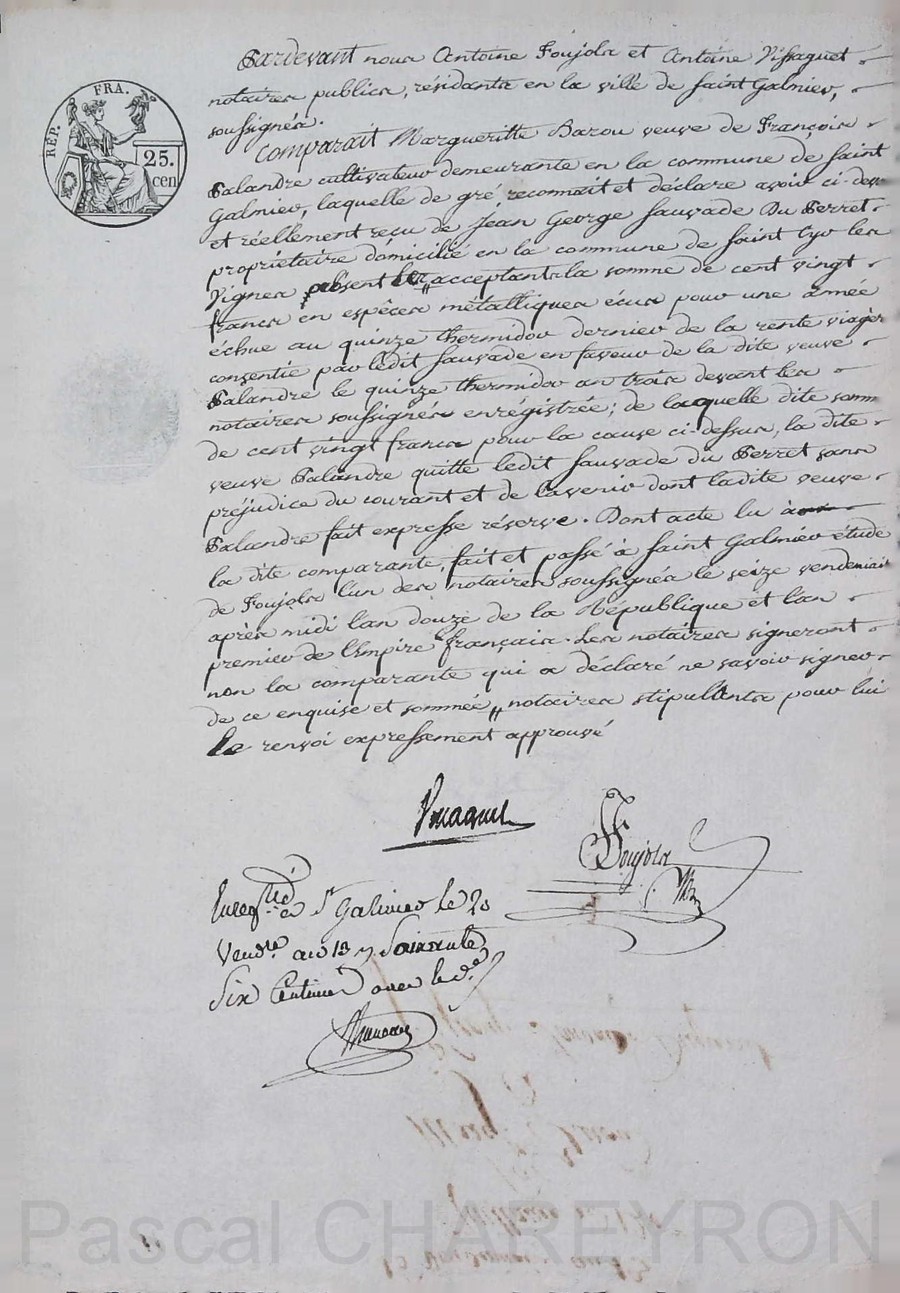 RÉP. FRA.
25.
cen
Pardevant nous Antoine Foujols et Antoine Vissaguet
notaires publics, résidants en la ville de Saint Galmier,
soussignés.
Comparait Margueritte Barou veuve de François
Palandre cultivateur demeurante en la commune de Saint
Galmier, laquelle de gré, reconnait et déclare avoir ci-devt
et réellement reçu de Jean George Sauvade Du Perret
propriétaire domicilié en la commune de Saint Cyr les
Vignes absent les „ acceptants la somme de cent vingt
francs en espèces métalliques écus pour une année
échue au quinze thermidor dernier de la rente viagère
consentie par ledit Sauvade en faveur de la dite veuve
Palandre le quinze thermidor an trois devant les
notaires soussignés enrégistrée; de laquelle dite somm
de cent vingt francs pour la cause ci-dessus, la dite
veuve Palandre quitte ledit Sauvade du Perret sans
préjudice du courant et de l'avenir dont ladite veuve
Palandre fait expresse réserve. Dont acte lu à
la dite comparante, fait et passé à Saint Galmier étude
de Foujols l'un des notaires soussignés le seize vendemiair
après midi l'an douze de la République et l'an
premier de l'Empire français. Les notaires signeront
non la comparante qui a déclaré ne savoir signer
de ce enquise et sommée „ notaires stipulants pour lui
Le renvoi expressement approuvé
Vissaguet
Foujols
Nre
Enregtré a St Galmier le 20
Vendre an 13 Soixante
Six Centimes avec le de
Pascal CHAREYRON